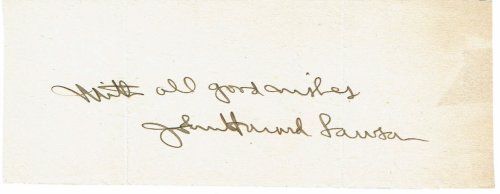 With all good wishes
John Howard Lawson